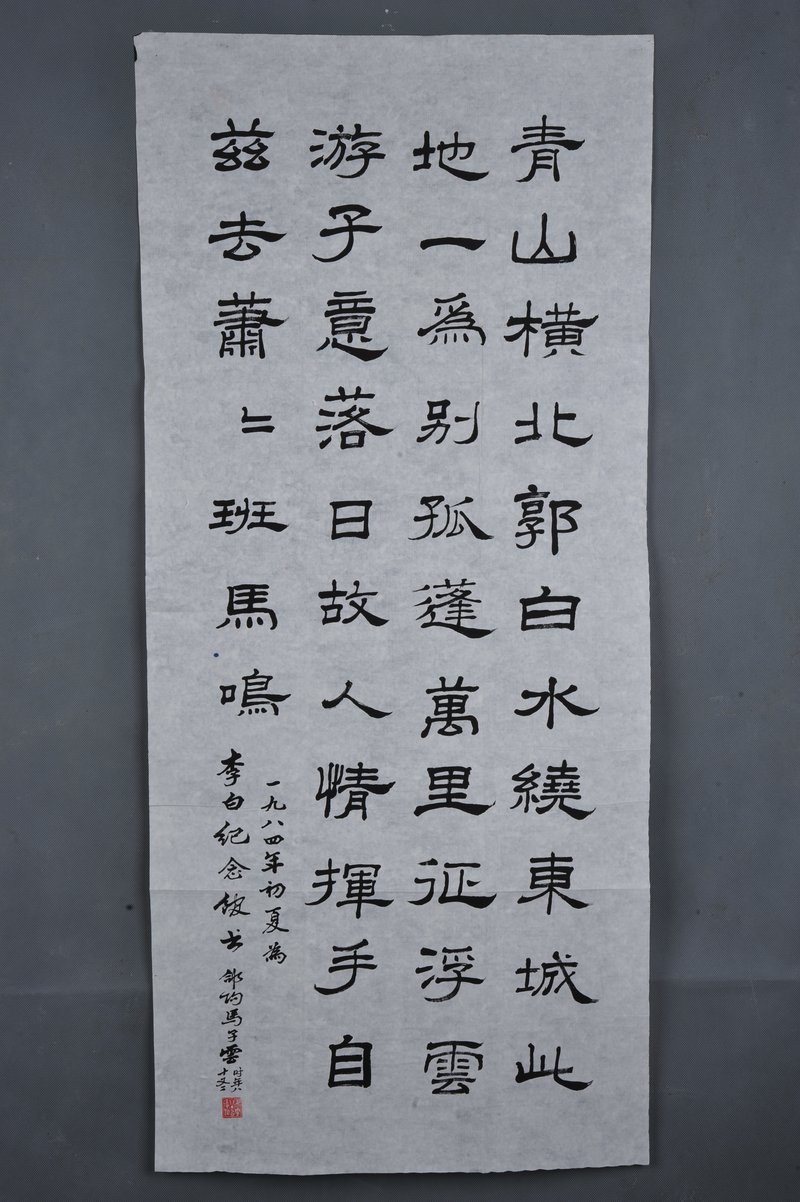 青山橫北郭白水繞東城此
地一爲別孤蓬萬里征浮雲
游子意落日故人情揮手自
茲去蕭〻班馬鳴
一九八四年初夏為
李白纪念馆书 郃陽馬子雲
时年八
十又二